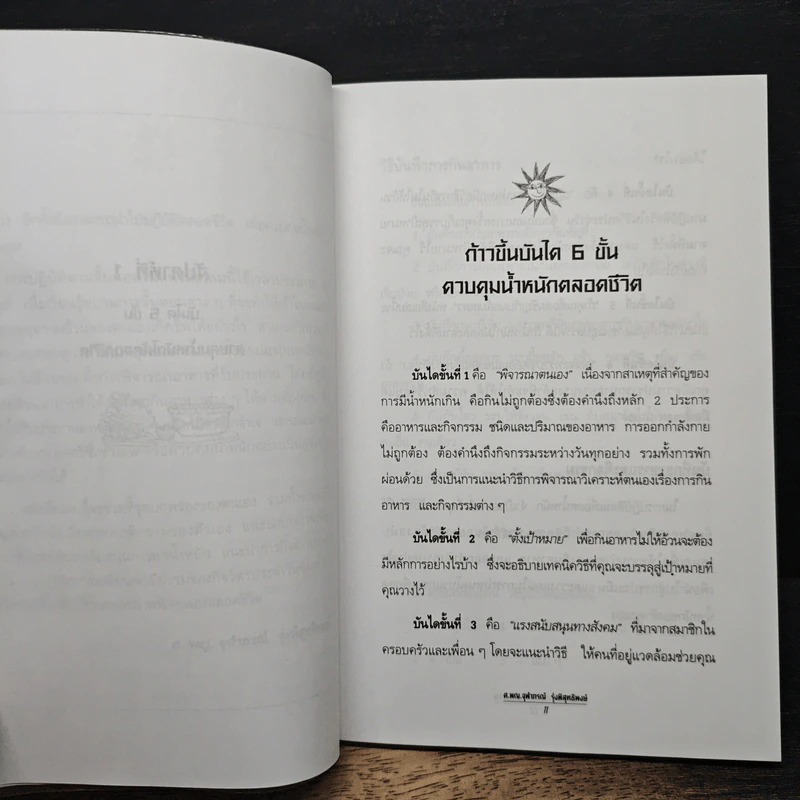 ก้าวขึ้นบันได 6 ขั้น
ควบคุมน้ำหนักตลอดชีวิต
บันไดขั้นที่ 1 คือ "พิจารณาตนเอง" เนื่องจากสาเหตุที่สำคัญของ
การมีน้ำหนักเกิน คือกินไม่ถูกต้องซึ่งต้องคำนึงถึงหลัก 2 ประการ
คืออาหารและกิจกรรม ชนิดและปริมาณของอาหาร การออกกำลังกาย
ไม่ถูกต้อง ต้องคำนึงถึงกิจกรรมระหว่างวันทุกอย่าง รวมทั้งการพัก
ผ่อนด้วย ซึ่งเป็นการแนะนำวิธีการพิจารณาวิเคราะห์ตนเองเรื่องการกิน
อาหาร และกิจกรรมต่าง ๆ
บันไดขั้นที่ 2 คือ "ตั้งเป้าหมาย" เพื่อกินอาหารไม่ให้อ้วนจะต้อง
มีหลักการอย่างไรบ้าง ซึ่งจะอธิบายเทคนิควิธีที่คุณจะบรรลุสู่เป้าหมายที่
คุณวางไว้
บันไดขั้นที่ 3 คือ "แรงสนับสนุนทางสังคม" ที่มาจากสมาชิกใน
ครอบครัวและเพื่อน ๆ โดยจะแนะนำวิธี ให้คนที่อยู่แวดล้อมช่วยคุณ
ศ.พญ.จุฬาภรณ์ รุ่งพิสุทธิพงษ์
11